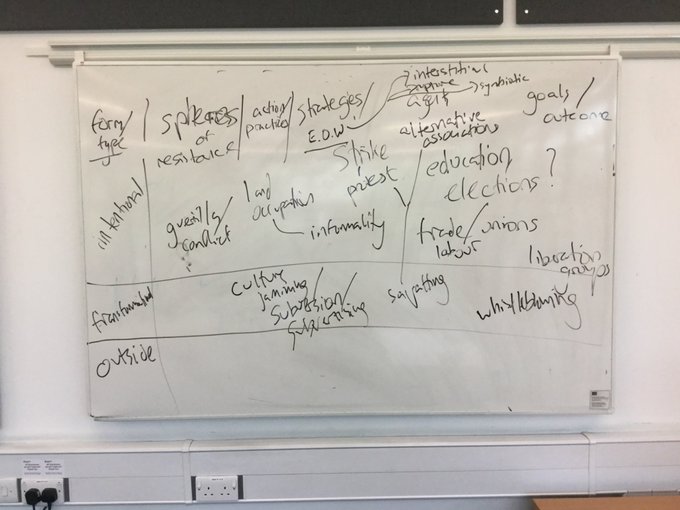 form/
type
spheres
of
resistance
action/
practices
strategies/
E.O.W
interstitial
rupture
symbiotic
alternative
associations
goals/
outcome
intentional
guerilla
conflict
land
occupation
informality
strike
protest
education
elections?
trade/unions
labour
liberation
groups
culture
jamming/
subversion/
subvertising
squatting
whistleblowing
outside